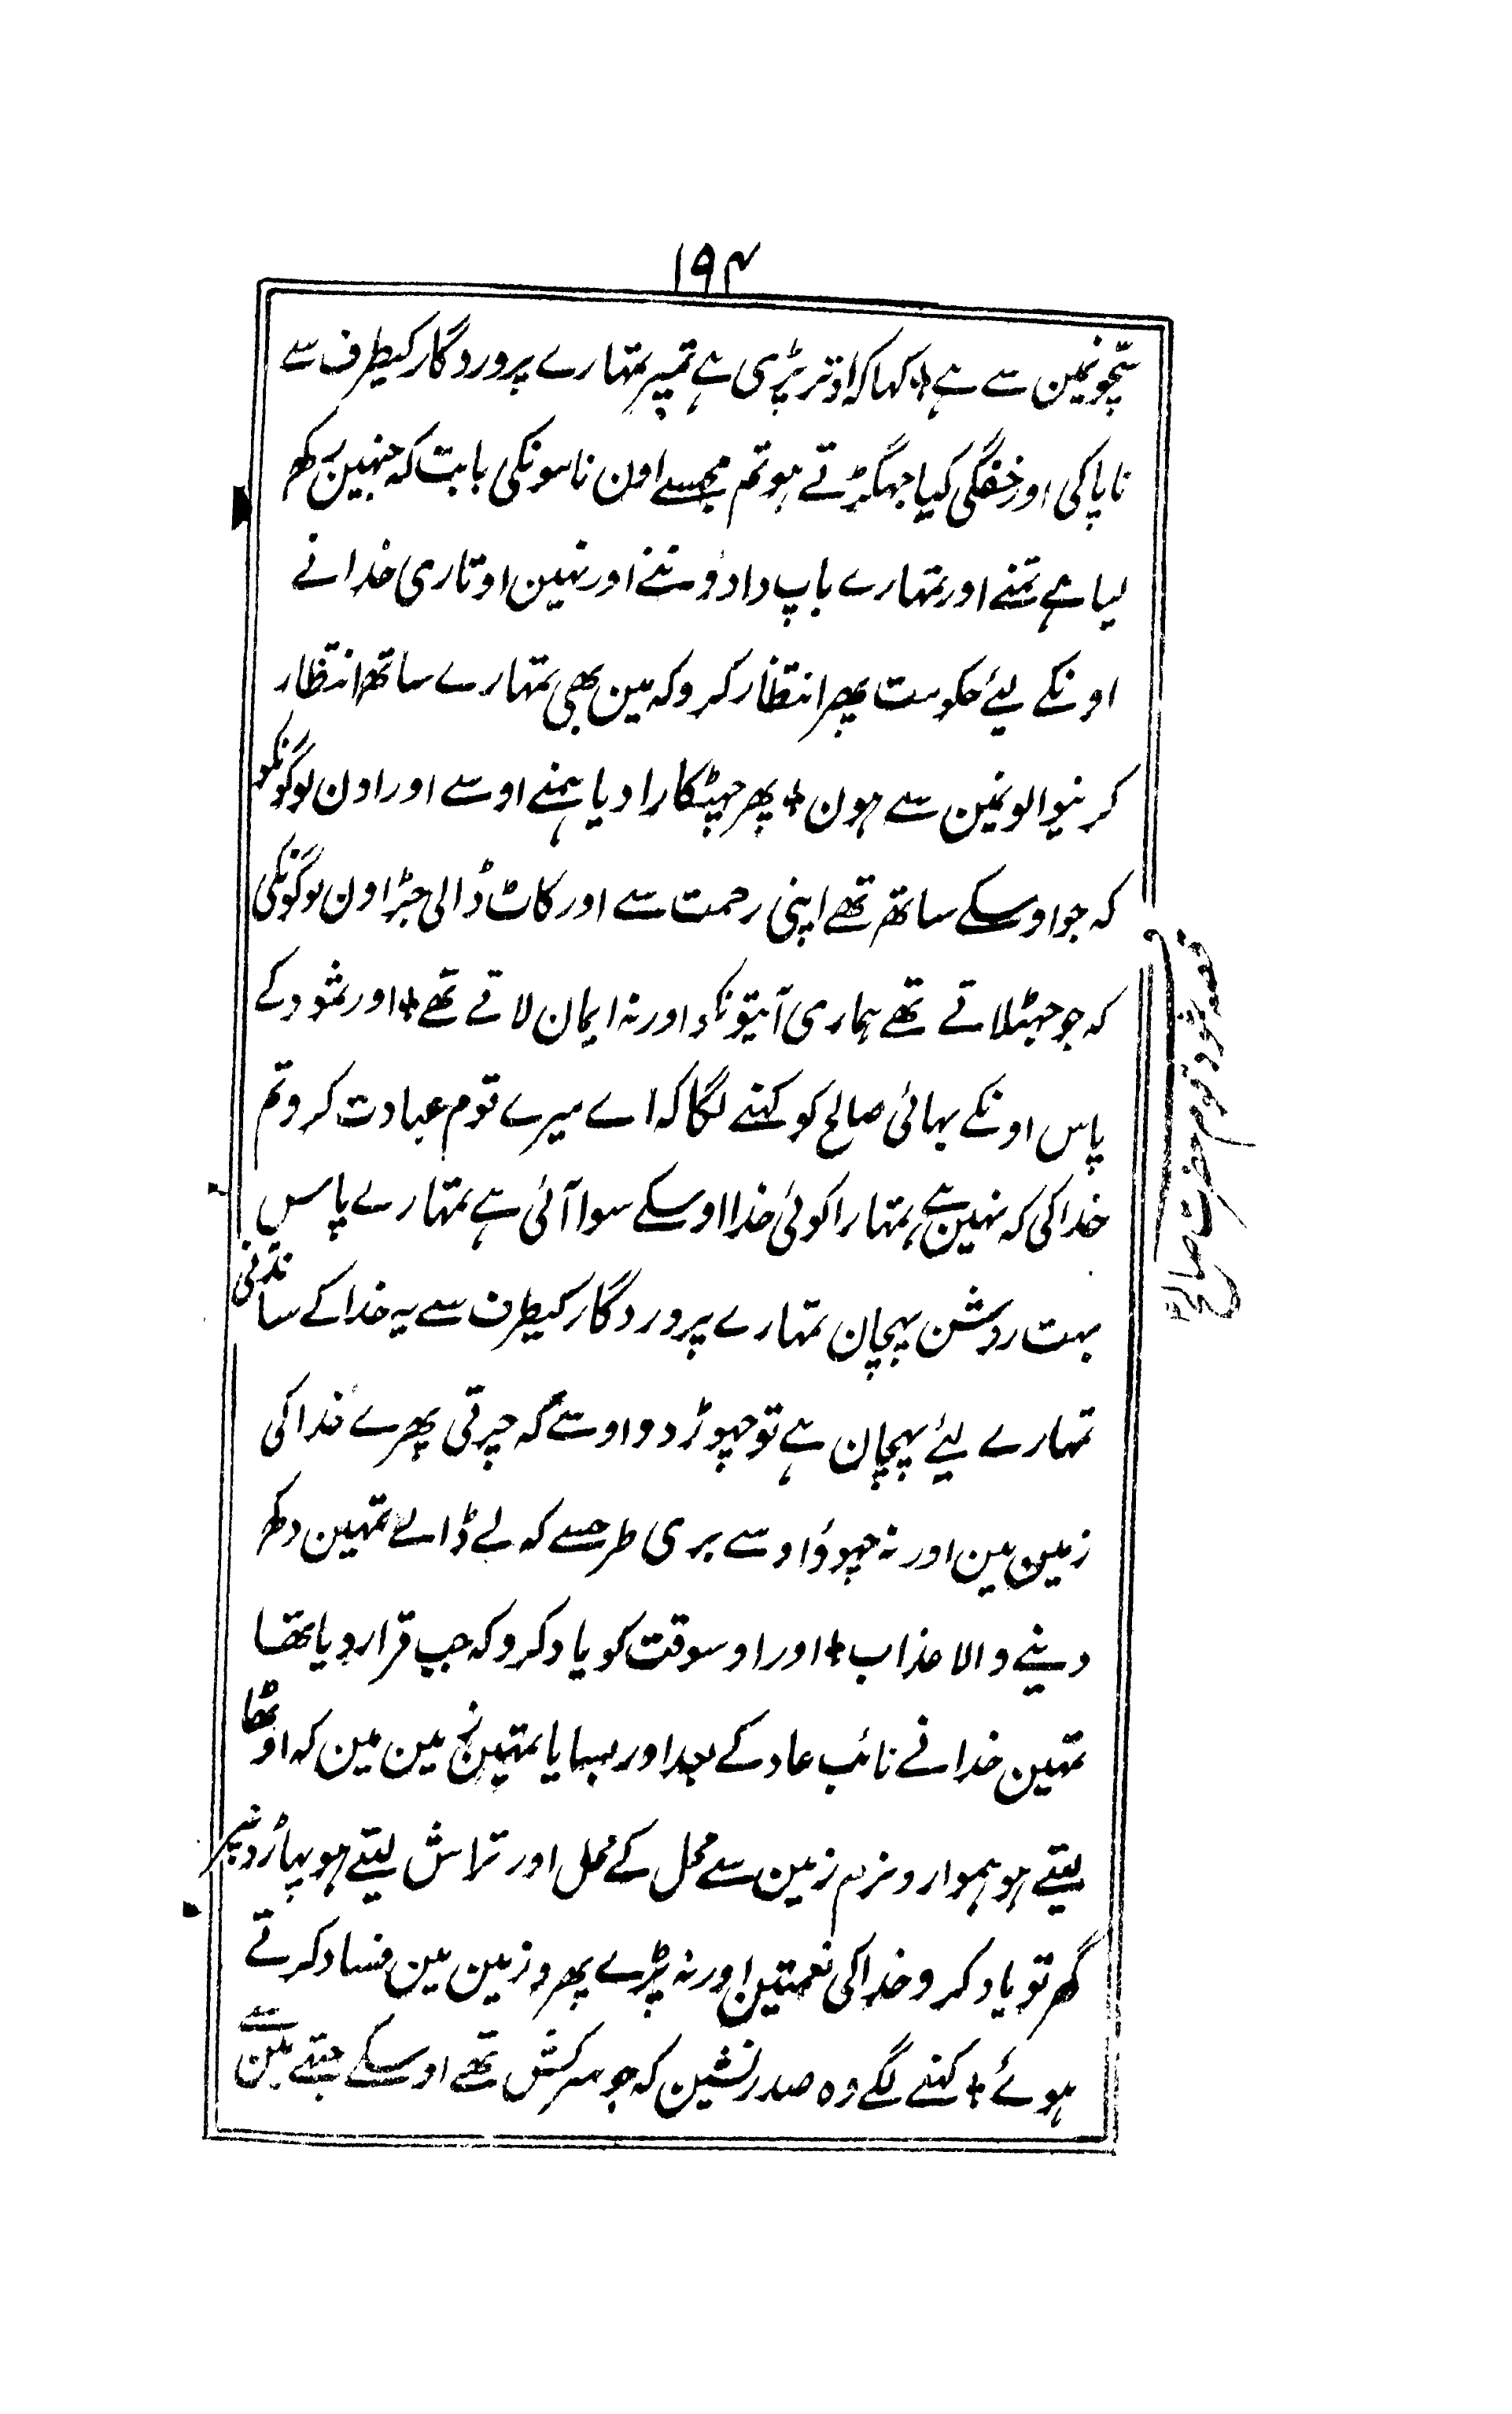 ۱۹۴
سچونمین سے ہے + کہا کہ اوتر پڑی ہے تمپر تمہارے پروردگار کیطرف سے
ناپاکی اور خفگی کیا جہگڑتے ہو تم مجھسے اون ناموںکی بابت کہ جنہین رکھ
لیا ہے تمنے اور تمہارے باپ دادوُننے اور نہین اوتاری خدانے
اونکے لیئے حکومت پھر انتظار کرو کہ مین بھی تمہارے ساتھ انتظار
کرنیوالونمین سے ہون + پھر چہٹکارا دیا ہمنے اوسے اور اون لوگونکو
کہ جو اوسکے ساتھ تھے اپنی رحمت سے اور کاٹ ڈالی جڑ اون لوگونکی
کہ جو جہٹلاتے تھے ہماری آیتونکو اور نہ ایمان لاتے تھے + اور ثمود کے
پاس اونکے بہائی صالح کو کہنے لگا کہ اے میرے قوم عبادت کرو تم
خدا کی کہ نہین ہے تمہارا کوئی خدا اوسکے سوا آئی ہے تمہارے پاس
بہت روشن پہچان تمہارے پروردگار کیطرف سے یہ خدا کے سانڈنی
تمہارے لیئے پہچان ہے تو چہوڑ دو اوسے کہ چرتی پھرے خدا کی
زمین مین اور نہ چہوؤ اوسے بری طرحسے کہ لے ڈالے تمہین دکھ
دینے والا عذاب + اور اوسوقت کو یاد کرو کہ جب قرار دیا تھا
تمہین خدا نے نائب عاد کے بعد اور بسایا تمہین زمین مین کہ اوٹھا
لیتے ہو ہموار و نرم زمین سے محل کے محل اور تراش لیتے ہو پہاڑونپر
گھر تو یاد کرو خدا کی نعمتین اور نہ پڑے پھرو زمین مین فساد کرتے
ہوئے + کہنے لگے وہ صدر نشین کہ جو سرکش تھے اوسکے جتھے مین سے
قصہ ثمود قوم حضرت صالحؑ